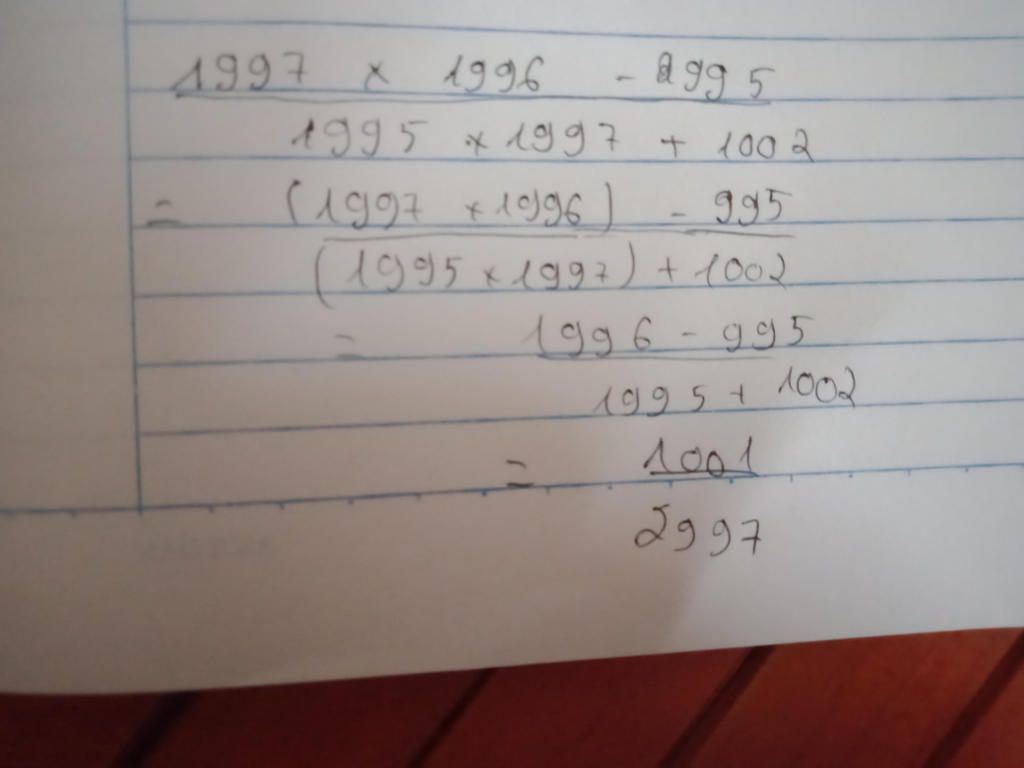 1997 × 1996 - 995
1995 × 1997 + 1002
= (1997 × 1996) - 995
(1995 × 1997) + 1002
= 1996 - 995
1995 + 1002
= 1001
2997